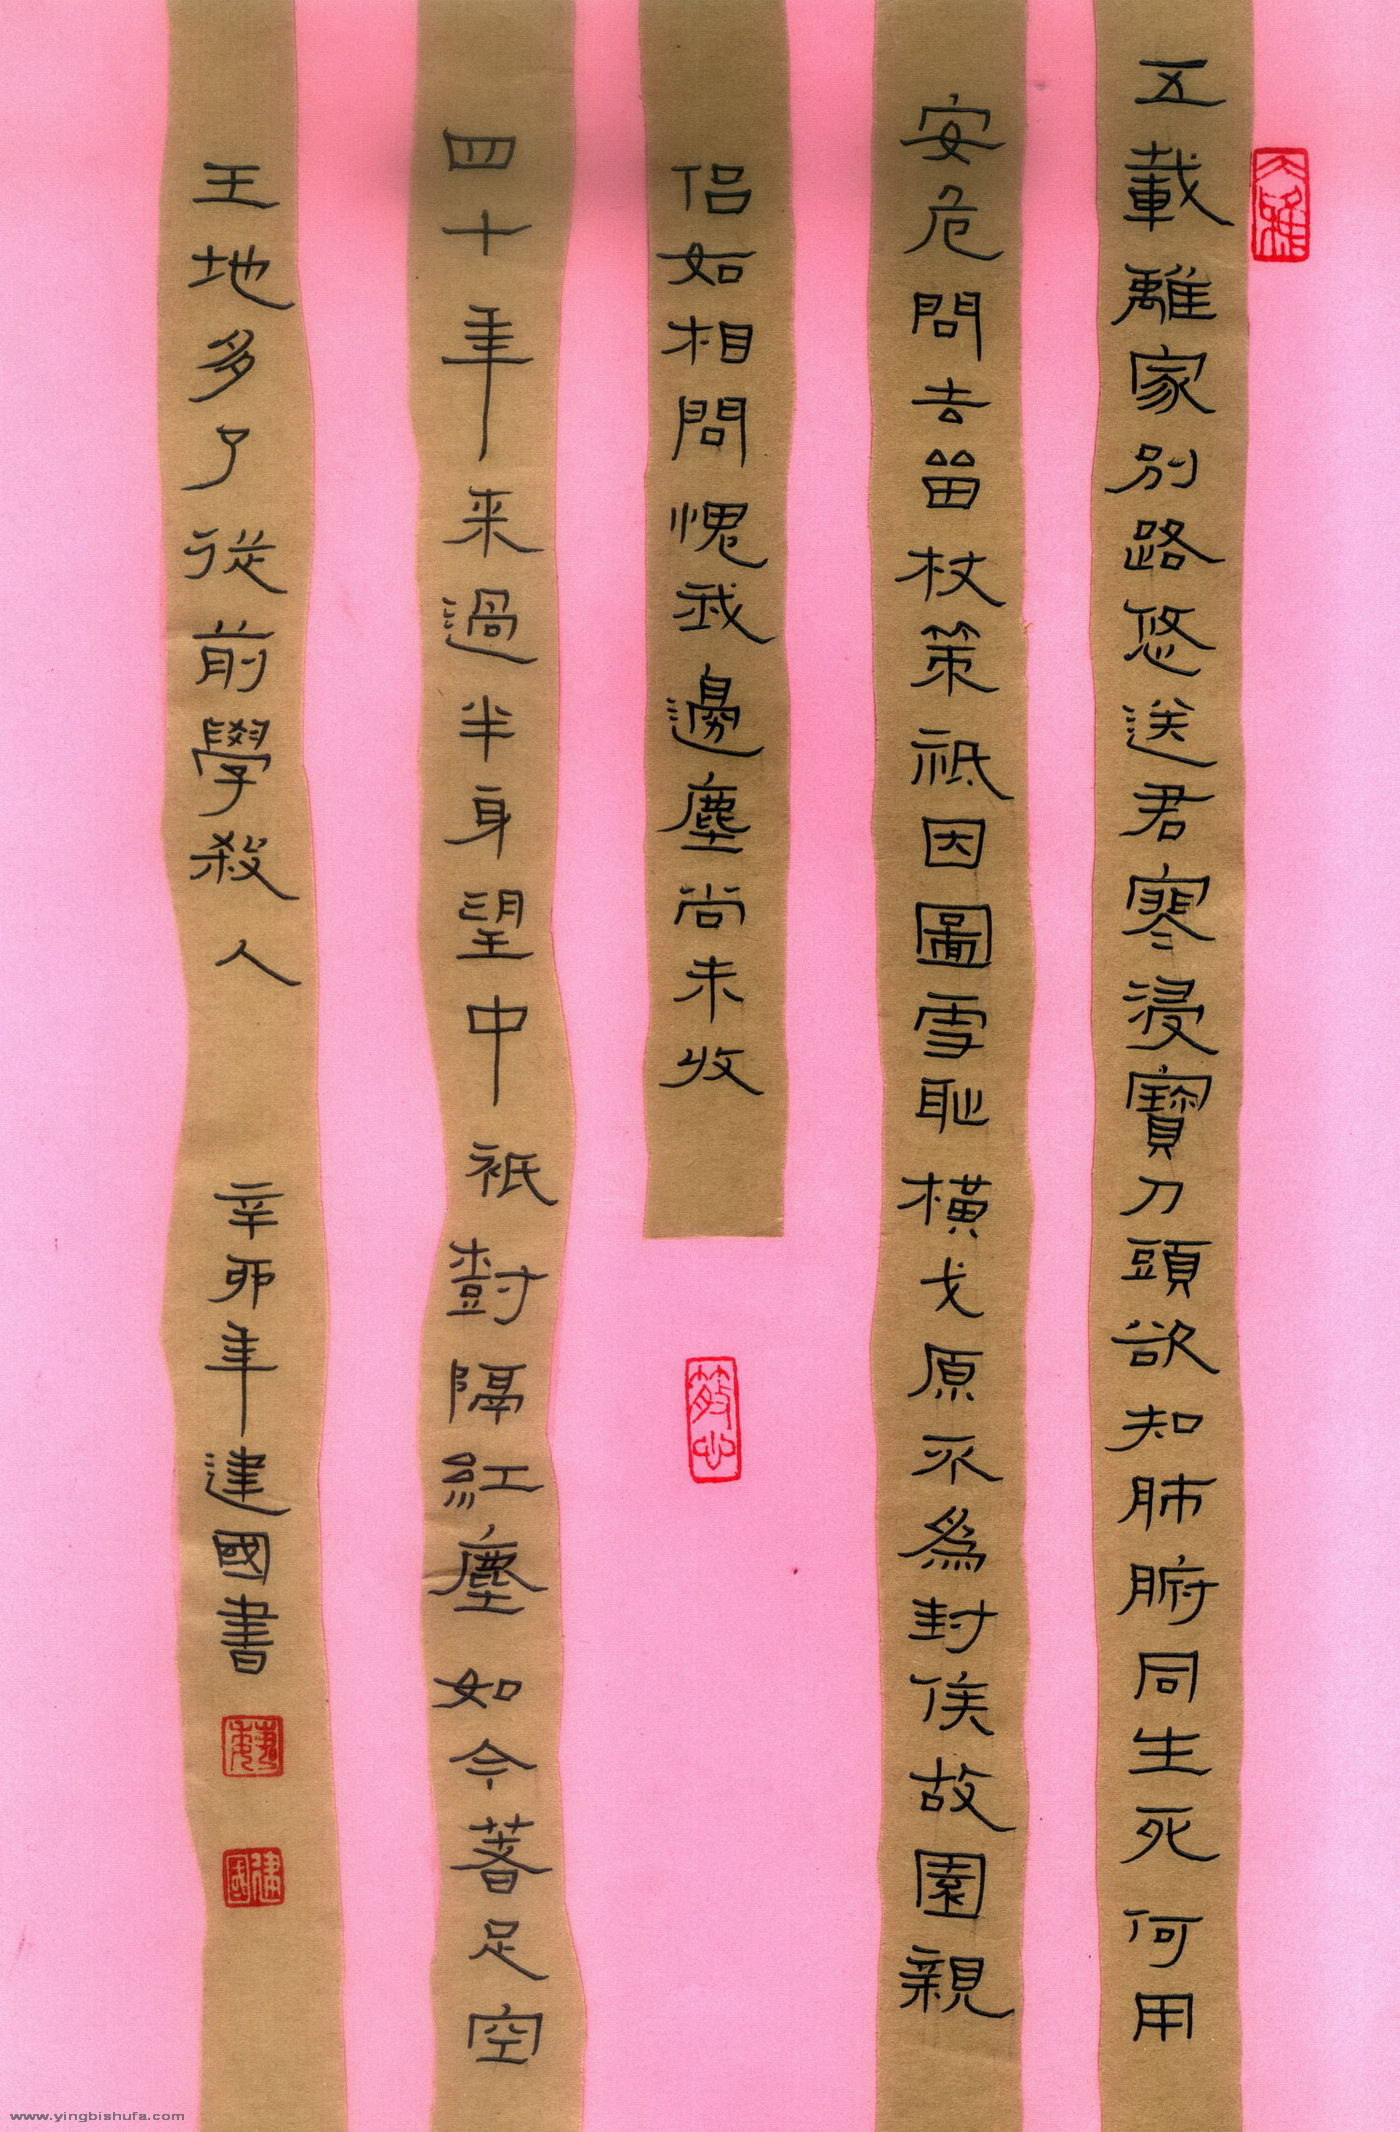 五載離家別路悠送君寒浸寶刀頭欲知肺腑同生死何用
安危問去留杖策祇因圖雪恥橫戈原不為封侯故園親
侶如相問愧我邊塵尚未收
四十年来過半身望中祇樹隔紅塵如今著足空
王地多了從前學殺人
辛卯年建國書
建國
www.yingbishufa.com